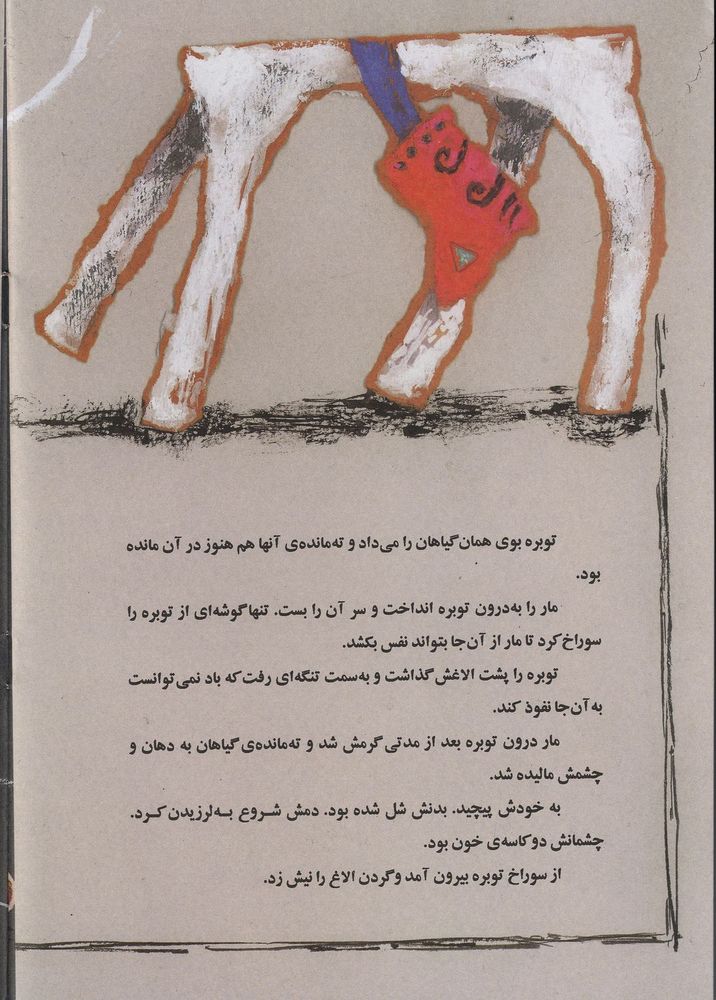 توبره بوی همان گیاهان را می‌داد و ته‌مانده‌ی آنها هم هنوز در آن مانده
بود.
مار را به‌درون توبره انداخت و سر آن را بست. تنها گوشه‌ای از توبره را
سوراخ کرد تا مار از آن‌جا بتواند نفس بکشد.
توبره را پشت الاغش گذاشت و به‌سمت تنگه‌ای رفت که باد نمی‌توانست
به آن‌جا نفوذ کند.
مار درون توبره بعد از مدتی گرمش شد و ته‌مانده‌ی گیاهان به دهان و
چشمش مالیده شد.
به خودش پیچید. بدنش شل شده بود. دمش شـروع بـه‌لرزیدن کـرد.
چشمانش دو کاسه‌ی خون بود.
از سوراخ توبره بیرون آمد و گردن الاغ را نیش زد.